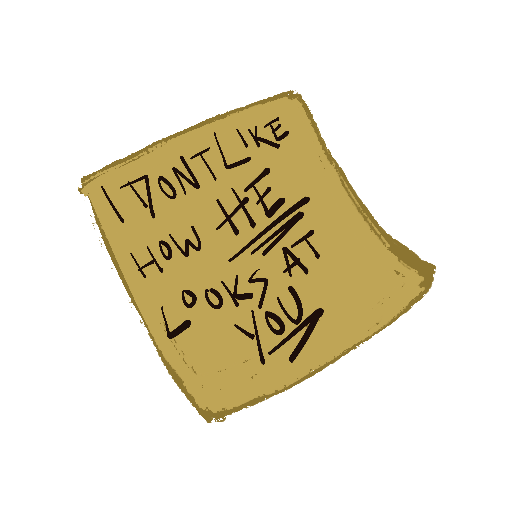 I DONT LIKE
HOW HE
LOOKS AT
YOU